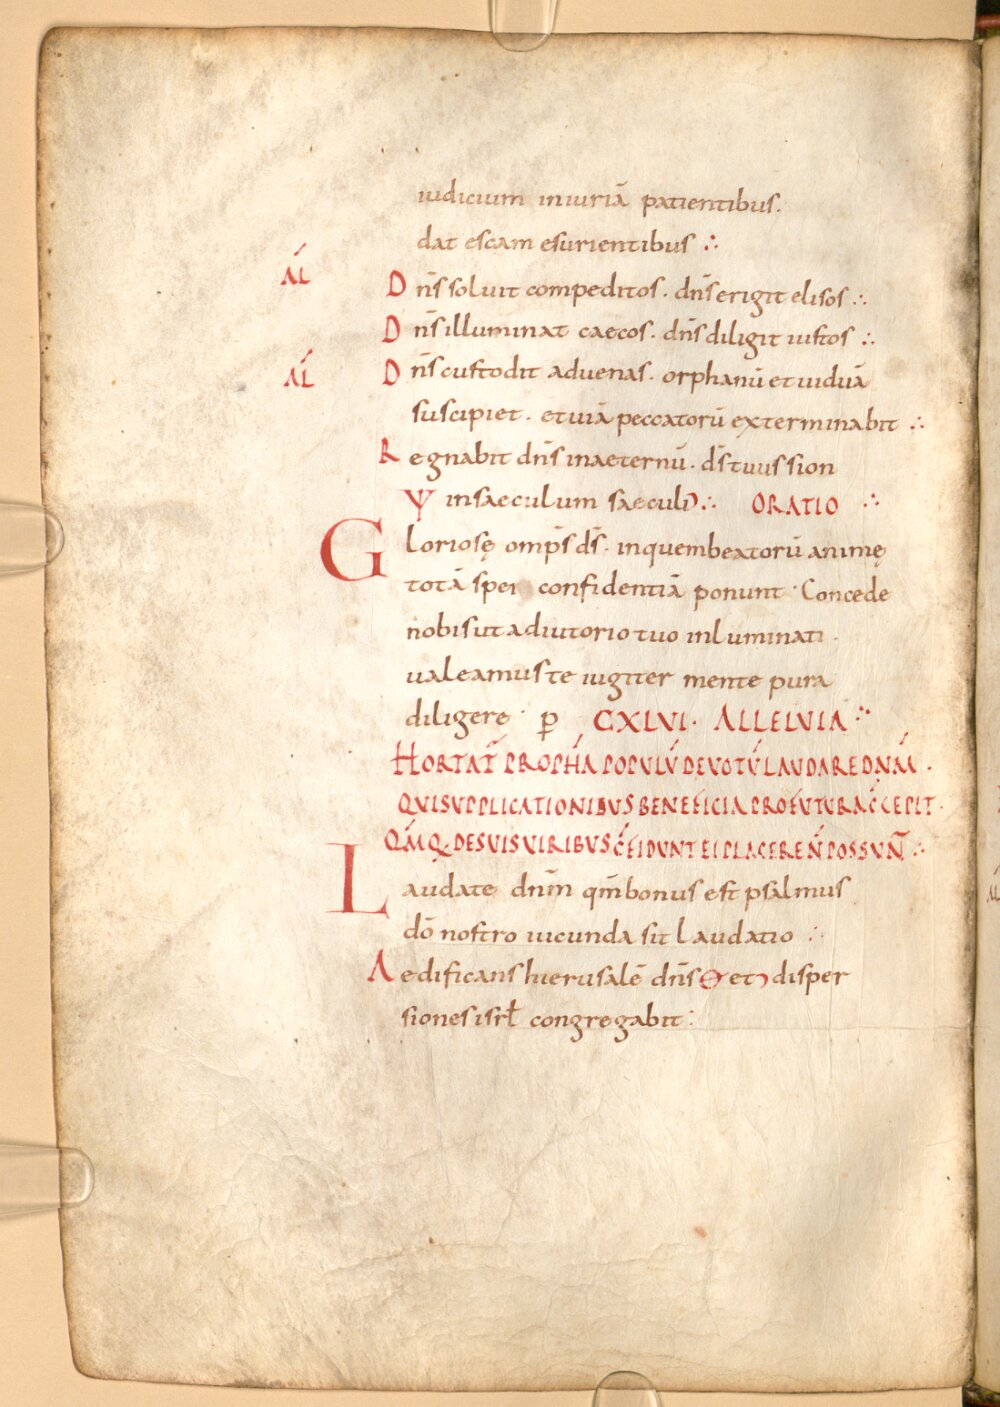 iudicium iniuriā patientibus.
dat escam esurientibus ∴
AL Dn̄s soluit compeditos. dn̄s erigit elisos ∴
Dn̄s illuminat caecos. dn̄s diligit iustos ∴
AL Dn̄s custodit aduenas. orphanū et uiduā
suscipiet. et uiā peccatorū exterminabit ∴
Regnabit dn̄s inaeternū. d̄s tuus sion
Ψ insaeculum saeculi ∴ ORATIO ∴
Gloriosę omp̄s d̄s. inquem beatorū animę
totā spei confidentiā ponunt · Concede
nobis ut adiutorio tuo inluminati
ualeamus te iugiter mente pura
diligere · p̄ CXLVI · ALLELVIA ∴
HORTAT̄ PROPH̄A POPULŪ DEVOTŪ LAVDARE DN̄M .
QVI SVPPLICATIONIBVS BENEFICIA PROFVTVRA CC̄EPIT.
QM̄Q. DE SVIS VIRIBVS C̄FIDVNT EI PLACERE N̄ POSSVN̄ ∴
Laudate dn̄m qm̄ bonus est psalmus
dō nostro iucunda sit Laudatio ∴
Aedificans hierusalē dn̄s et disper
siones isrł congregabit :